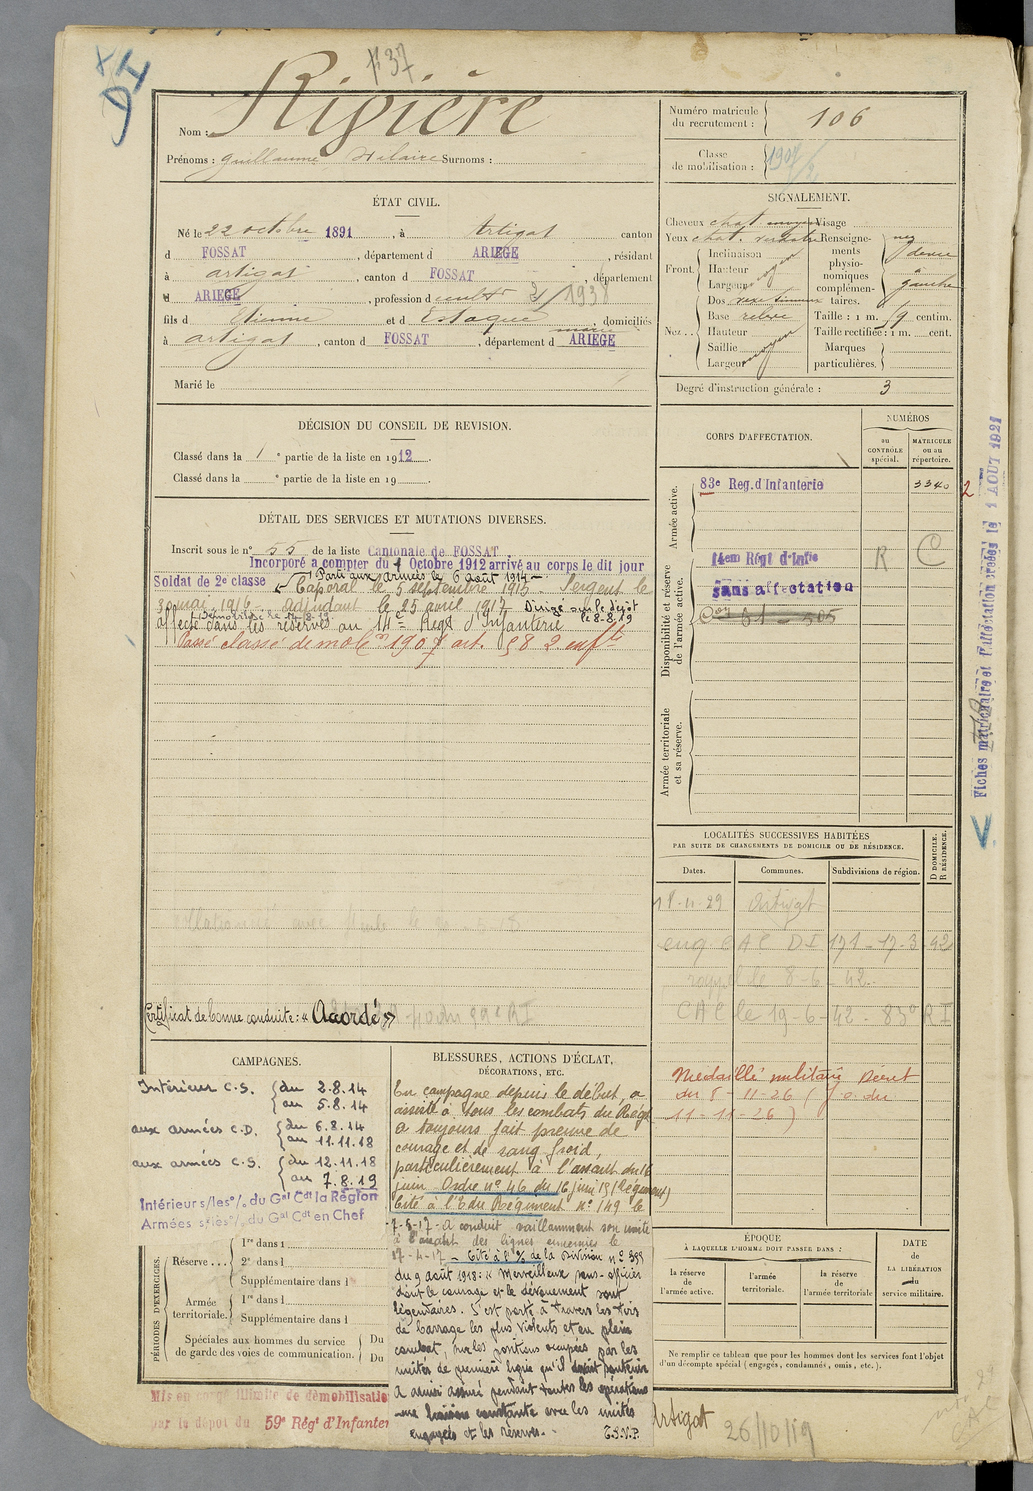 94
1137
Nom : Rivière
Prénoms : Guillaume Hilaire Surnoms :
Numéro matricule du recrutement : 106
Classe de mobilisation : 1907/2
ÉTAT CIVIL.
Né le 22 octobre 1891, à Artigat canton
d FOSSAT, département d ARIEGE, résidant
à Artigat, canton d FOSSAT, département
d ARIEGE, profession d cultr 2/1938
fils d Etienne et d Estaque marie domiciliés
à Artigat, canton d FOSSAT, département d ARIEGE
Marié le
SIGNALEMENT.
Cheveux chat. moyen Visage
Yeux chat. Renseignements physionomiques complémentaires.
nez
gauche
Front. Inclinaison
Hauteur moyen
Largeur
Nez.. Dos
Base relevé
Hauteur
Saillie moyen
Largeur
Taille : 1 m. centim.
Taille rectifiée : 1 m. cent.
Marques particulières.
Degré d'instruction générale : 3
DÉCISION DU CONSEIL DE REVISION.
Classé dans la 1e partie de la liste en 1912.
Classé dans la e partie de la liste en 19
DÉTAIL DES SERVICES ET MUTATIONS DIVERSES.
Inscrit sous le n° 55 de la liste Cantonale de FOSSAT
Incorporé a compter du 1 Octobre 1912 arrivé au corps le dit jour
Soldat de 2e classe
Parti aux armées le 6 août 1914 —
Caporal le 5 septembre 1915. Sergent le
30 mai 1916. adjudant le 25 avril 1917. Dirigé sur le dépôt
le 8-8-19
Démobilisé le
affecté dans les réserves au 14e Régt d'Infanterie
Passé classe de mobon 1907 art. 58 2 enfts
Certificat de bonne conduite : « Acordé »
CORPS D'AFFECTATION.
NUMÉROS
au CONTRÔLE spécial.
MATRICULE ou au répertoire.
Armée active.
83e Reg. d'Infanterie
3340
2
Disponibilité et réserve de l'armée active.
14em Régt d'Infie
R
C
sans affectation
Armée territoriale et sa réserve.
Fiches matriculaire et d'affectation créées le 1 AOUT 1921
LOCALITÉS SUCCESSIVES HABITÉES
PAR SUITE DE CHANGEMENTS DE DOMICILE OU DE RÉSIDENCE.
D DOMICILE. R RÉSIDENCE.
Dates. Communes. Subdivisions de région.
18-11-29 Artigat
eng CAC DI 171-17-3-42
rappel le 8-6-42
CAC le 19-6-42 83e RI
Médaillé militaire Décret
du 8-11-26 (J.O. du
11-11-26)
CAMPAGNES.
Intérieur C.S. du 2.8.14
au 5.8.14
aux armées C.D. du 6.8.14
au 11.11.18
aux armées C.S. du 12.11.18
au 7.8.19
Intérieur s/les o/. du Gal Cdt la Région
Armées s/les o/. du Gal Cdt en Chef
PÉRIODES D'EXERCICES.
Réserve... 1re dans l
2e dans l
Supplémentaire dans l
Armée territoriale. 1re dans l
Supplémentaire dans l
Spéciales aux hommes du service de garde des voies de communication. Du
Du
BLESSURES, ACTIONS D'ÉCLAT,
DÉCORATIONS, ETC.
En campagne depuis le début, a
assisté à tous les combats du Régt
a toujours fait preuve de
courage et de sang froid,
particulièrement à l'assaut du 16
juin. Ordre n° 46 du 16 juin 15 (Régiment)
Cité à l'O du Régiment n° 149 le
7-5-17 - a conduit vaillamment son unité
à l'assaut des lignes ennemies le
17-4-17 — Cité à l'O/. de la Division n° 355
du 9 août 1918 : « Merveilleux sous-officier
dont le courage et le dévouement sont
légendaires. S'est porté à travers les tirs
de barrage les plus violents et en plein
combat, sur les positions occupées par les
unités de première ligne qu'il devait soutenir
a ainsi assuré pendant toutes les opérations
une liaison constante avec les unités
engagées et les réserves.
T.S.V.P.
ÉPOQUE
À LAQUELLE L'HOMME DOIT PASSER DANS :
la réserve de l'armée active.
l'armée territoriale.
la réserve de l'armée territoriale
DATE de LA LIBÉRATION du service militaire.
Ne remplir ce tableau que pour les hommes dont les services font l'objet
d'un décompte spécial (engagés, condamnés, omis, etc.).
Mis en congé illimité de démobilisation
par le dépôt du 59e Régt d'Infanter
Artigat
26/10/19